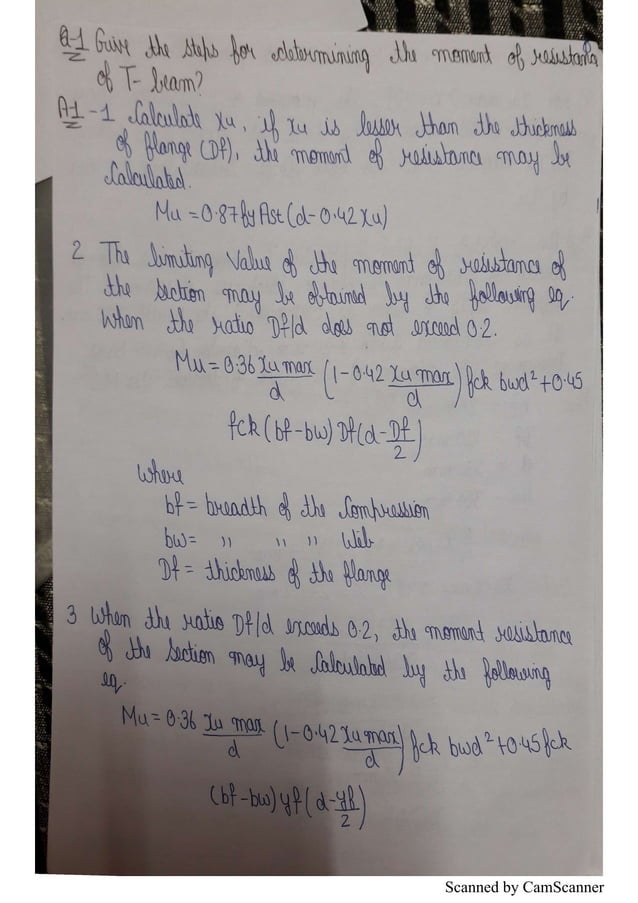 Q-1 Give the steps for determining the moment of resistance
of T-beam?
A1 -1 Calculate Xu, if Xu is lesser than the thickness
of flange (Df), the moment of resistance may be
Calculated.
Mu = 0.87fyAst(d-0.42Xu)
2 The limiting Value of the moment of resistance of
the section may be obtained by the following eq.
When the ratio Df/d does not exceed 0.2.
Mu = 0.36 Xu max/d (1-0.42 Xu max/d) fck bwd² + 0.45
fck (bf-bw) Df(d-Df/2)
Where
bf = breadth of the Compression
bw = " " " Web
Df = thickness of the flange
3 When the ratio Df/d exceeds 0.2, the moment resistance
of the section may be Calculated by the following
eq.
Mu = 0.36 Xu max/d (1-0.42 Xu max/d) fck bwd² + 0.45fck
(bf-bw) yf (d-yf/2)
Scanned by CamScanner